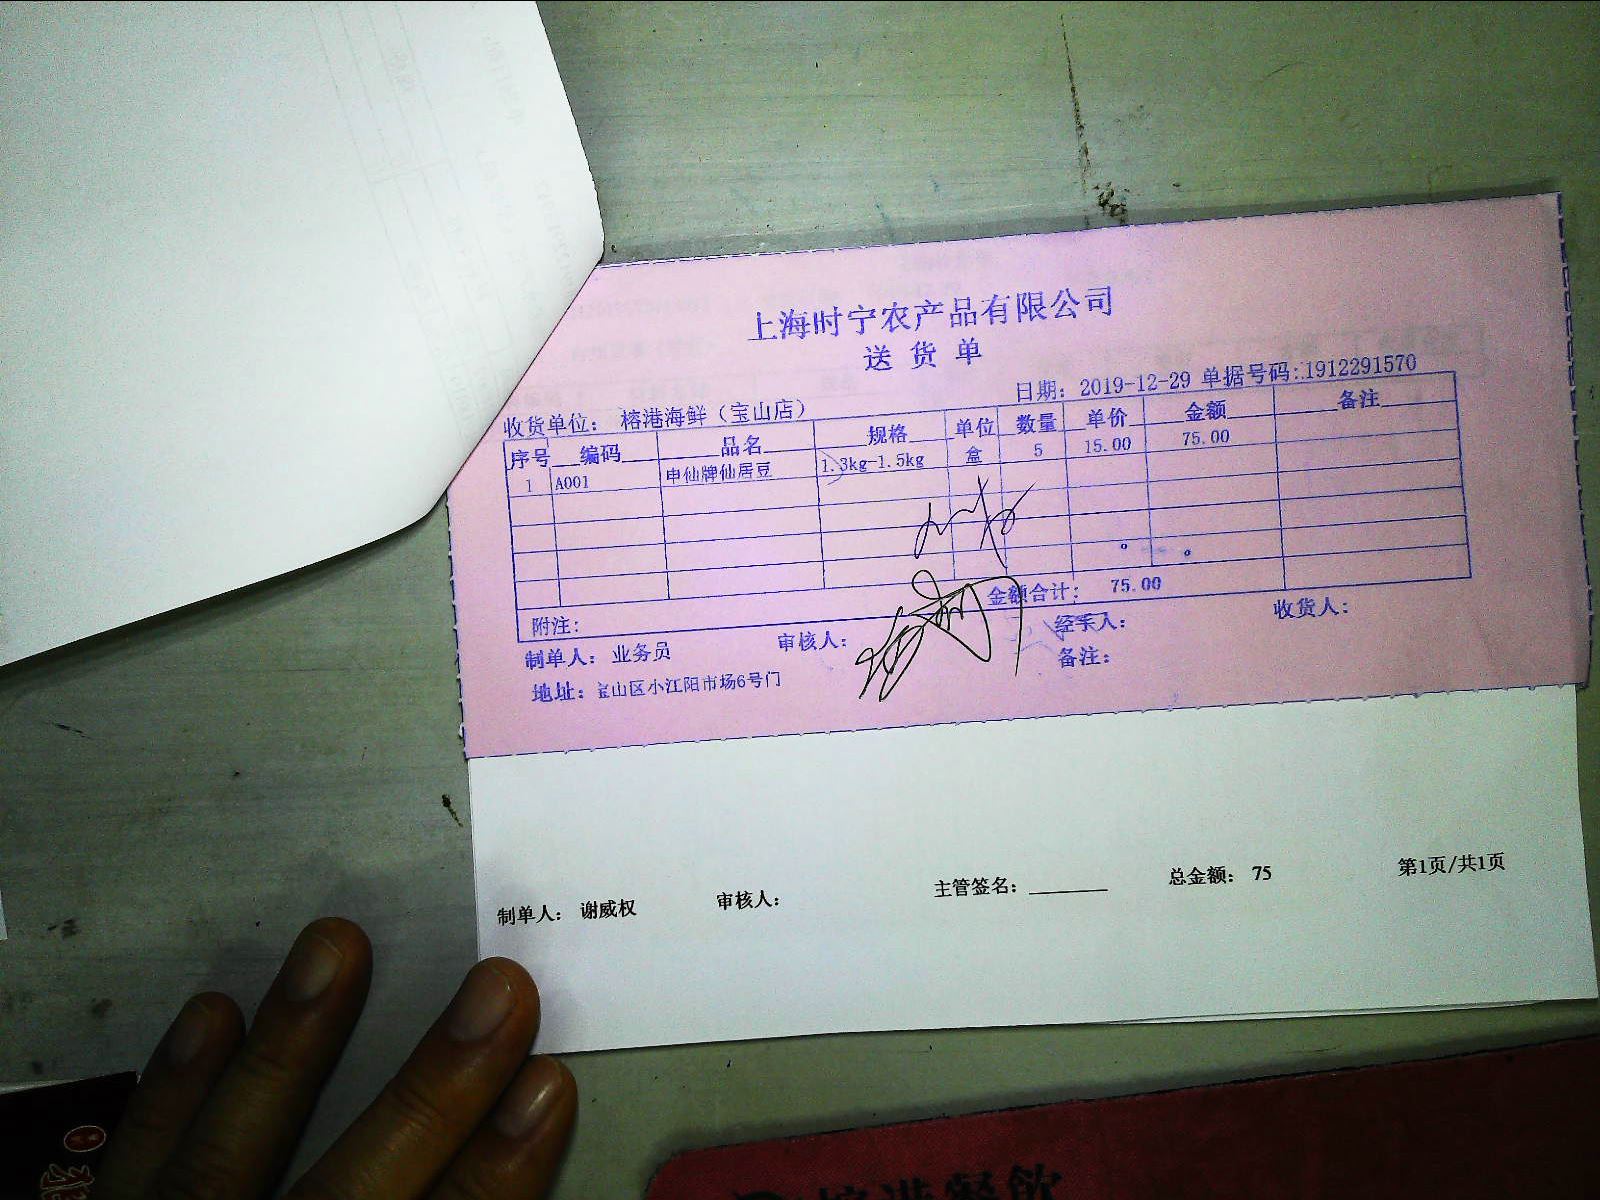 上海时宁农产品有限公司
送货单
日期：2019-12-29 单据号码：1912291570
收货单位： 榕港海鲜（宝山店）
序号 编码 品名 规格 单位 数量 单价 金额 备注
1 A001 申仙牌仙居豆 1.3kg-1.5kg 盒 5 15.00 75.00
附注： 金额合计： 75.00
制单人： 业务员 审核人： 经手人： 收货人：
地址：宝山区小江阳市场6号门 备注：
制单人： 谢威权 审核人： 主管签名： 总金额： 75 第1页/共1页
榕港餐飲